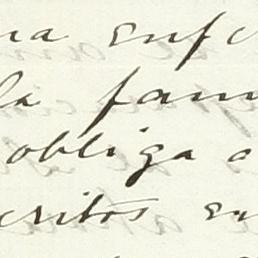 na enfe
la fam
obliga a
critos en